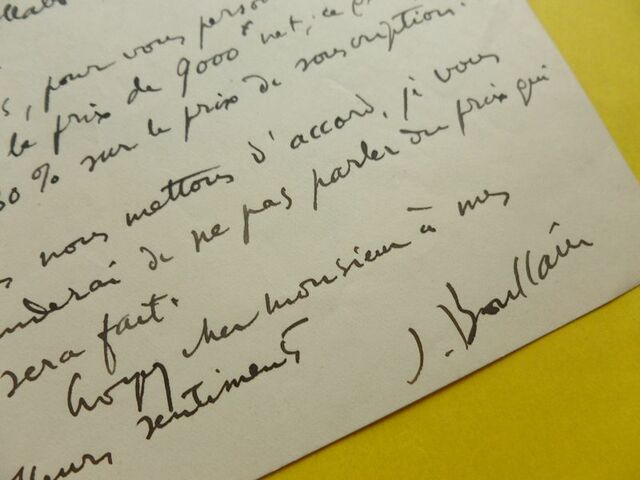 , pour vous person
le prix de 9000 net, ce
30 % sur le prix de souscription.
nous mettons d'accord, je vous
nderai de ne pas parler du prix qui
sera fait.
Croyez cher monsieur à mes
lleurs sentiments
J. Boullaire